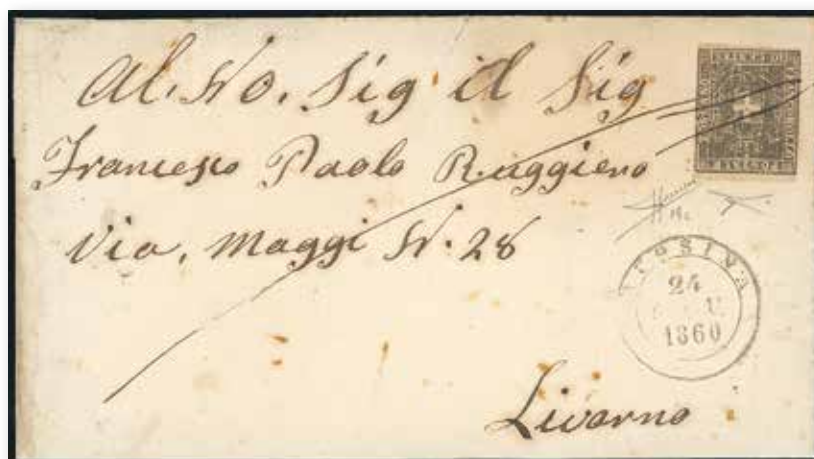 Al. No. Sig il Sig
Francesco Paolo Ruggieno
Via, Maggi N. 28
24
1860
Livorno